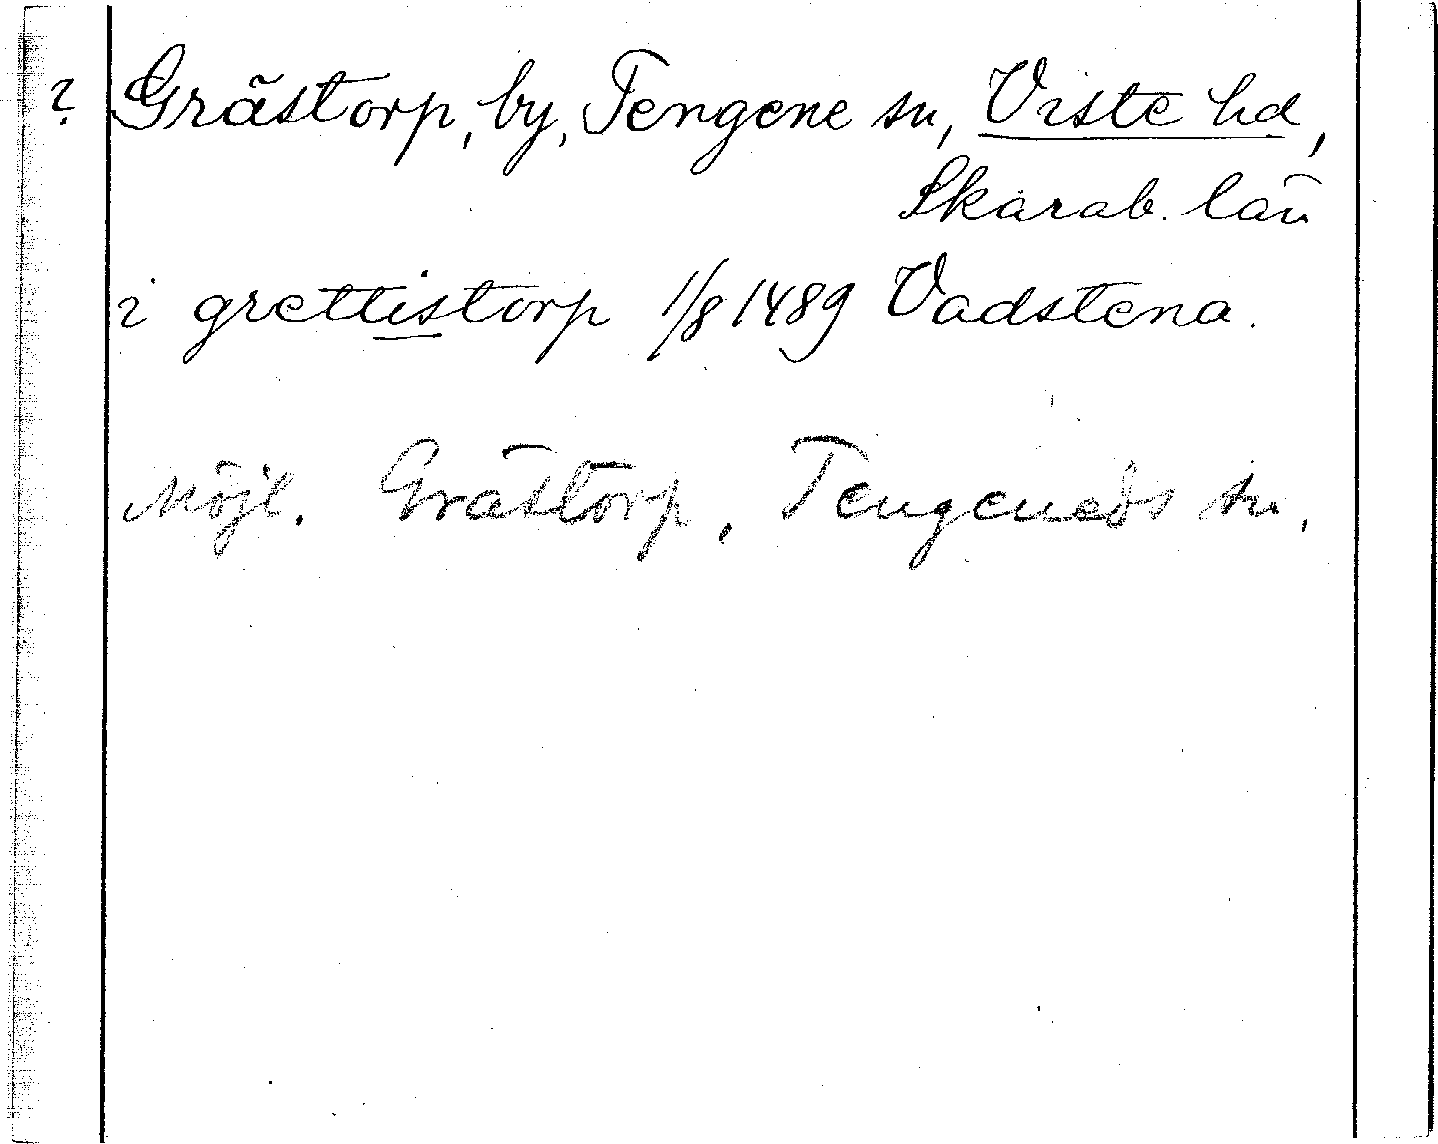 ? Grästorp, by, Tengene sn, Viste hd,
Skarab. län
i grettistorp 1/8 1489 Vadstena.
Möjl. Grästorp, Tengeneds sn,